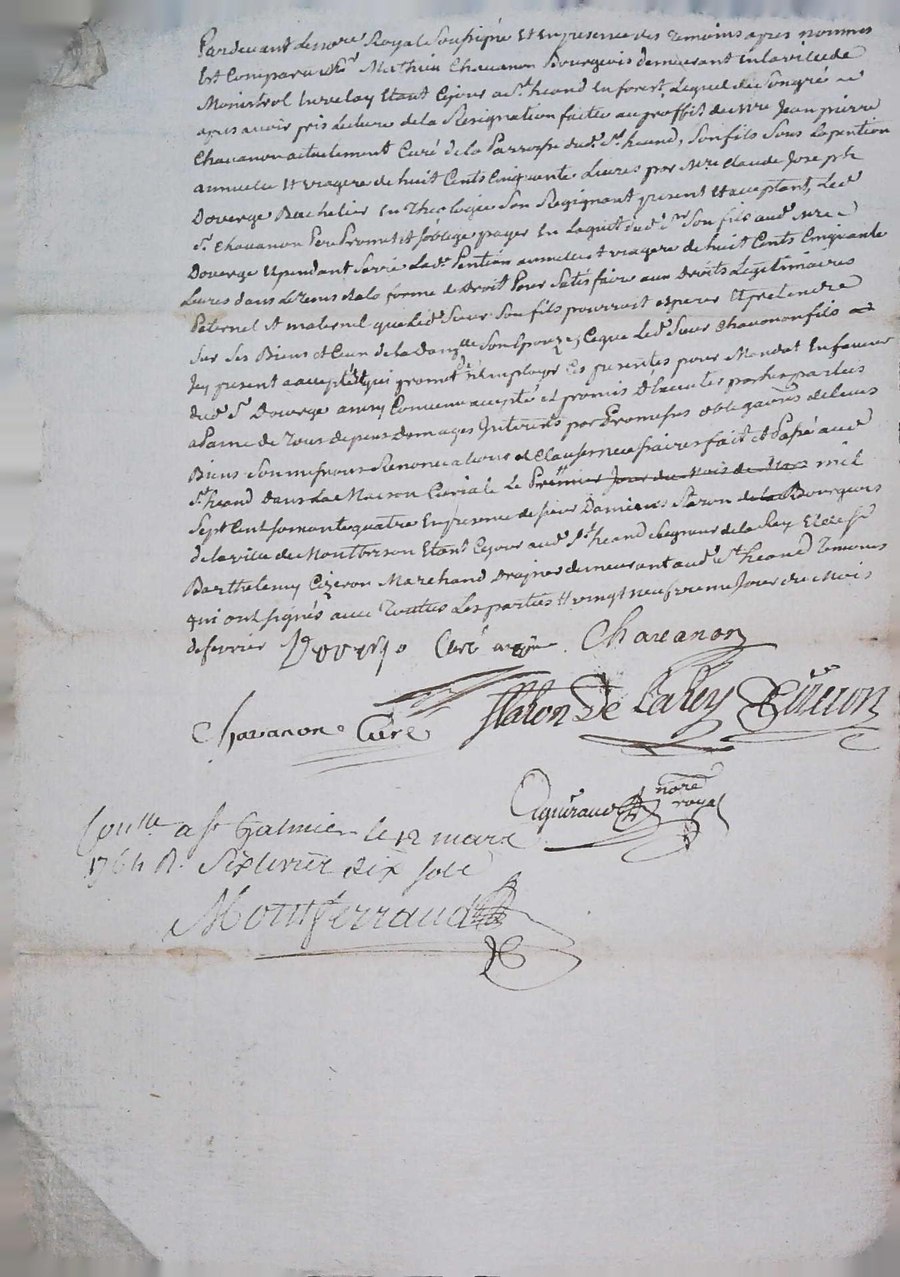 Pardevant le no.re Royal Soussigné Et En presence des Temoins apres nommes
Est Comparu S.r Mathieu Chavanon Bourgeois demeurant En la ville de
Monistrol En velay Etant Ce jour a S.t heand En forest, Lequel de Son gré
apres avoir pris Lecture de la Resignation faitte au proffit de M.re Jean pierre
Chavanon actuelement Curé de la Parroisse dud. S.t heand, Son fils Sous La pention
annuelle Et viagere de huit Cents Cinquante Livres par M.re Claude Joseph
Doverge Bachelier En Theologie Son Resignant present Et acceptant, Led.
S.r Chavanon Pere Promet et s'oblige payer En L'aquit dud. S.r Son fils aud. M.re
Doverge Et pendant Sa vie Lad. Pention annuelle Et viagere de huit Cents Cinquante
Livres dans Le Tems et a la forme de Droit Pour Satisfaire aux Droits Légitimaires
Paternel et maternel que Led. Sieur Son fils pourroit esperer Et pretendre
Sur Ses Biens et Ceux de la Dam.lle Son Epouze, Ce que Led. Sieur Chavanon fils
Icy present a accepté Et qui promet Ces presentes pour Mandat En faveur
dud. S.r Doverge ainsy Convenu accepté et promis D'Executer par les parties
a Paine de Tous depens Domages Interets par Promesses obligaôns de Leurs
Biens Soumissions Renonciations et Clauses necessaires fait et Passé aud.
S.t heand dans La Maison Curiale Le Premier Jour du Mois de Mars mil
Sept Cent Soixante quatre En presence de Sieur Damien Staron de la Bourgeois
de la ville de Montbrison Etant Ce jour aud. S.t heand Seigneur de la Rey Et de S.r
Barthelemy Cizeron Marchand Drapier demeurant aud. S.t heand Temoins
qui ont signés avec Toutes Les parties vingt neufvieme Jour du Mois
de fevrier Doverge Curé Chavanon
Chavanon Curé Staron De La Rey Cizeron
Aguiraud no.re royal
Con.llé a S.t Galmier le 12 mars
1764 R. Six livres dix sols
Montferrand